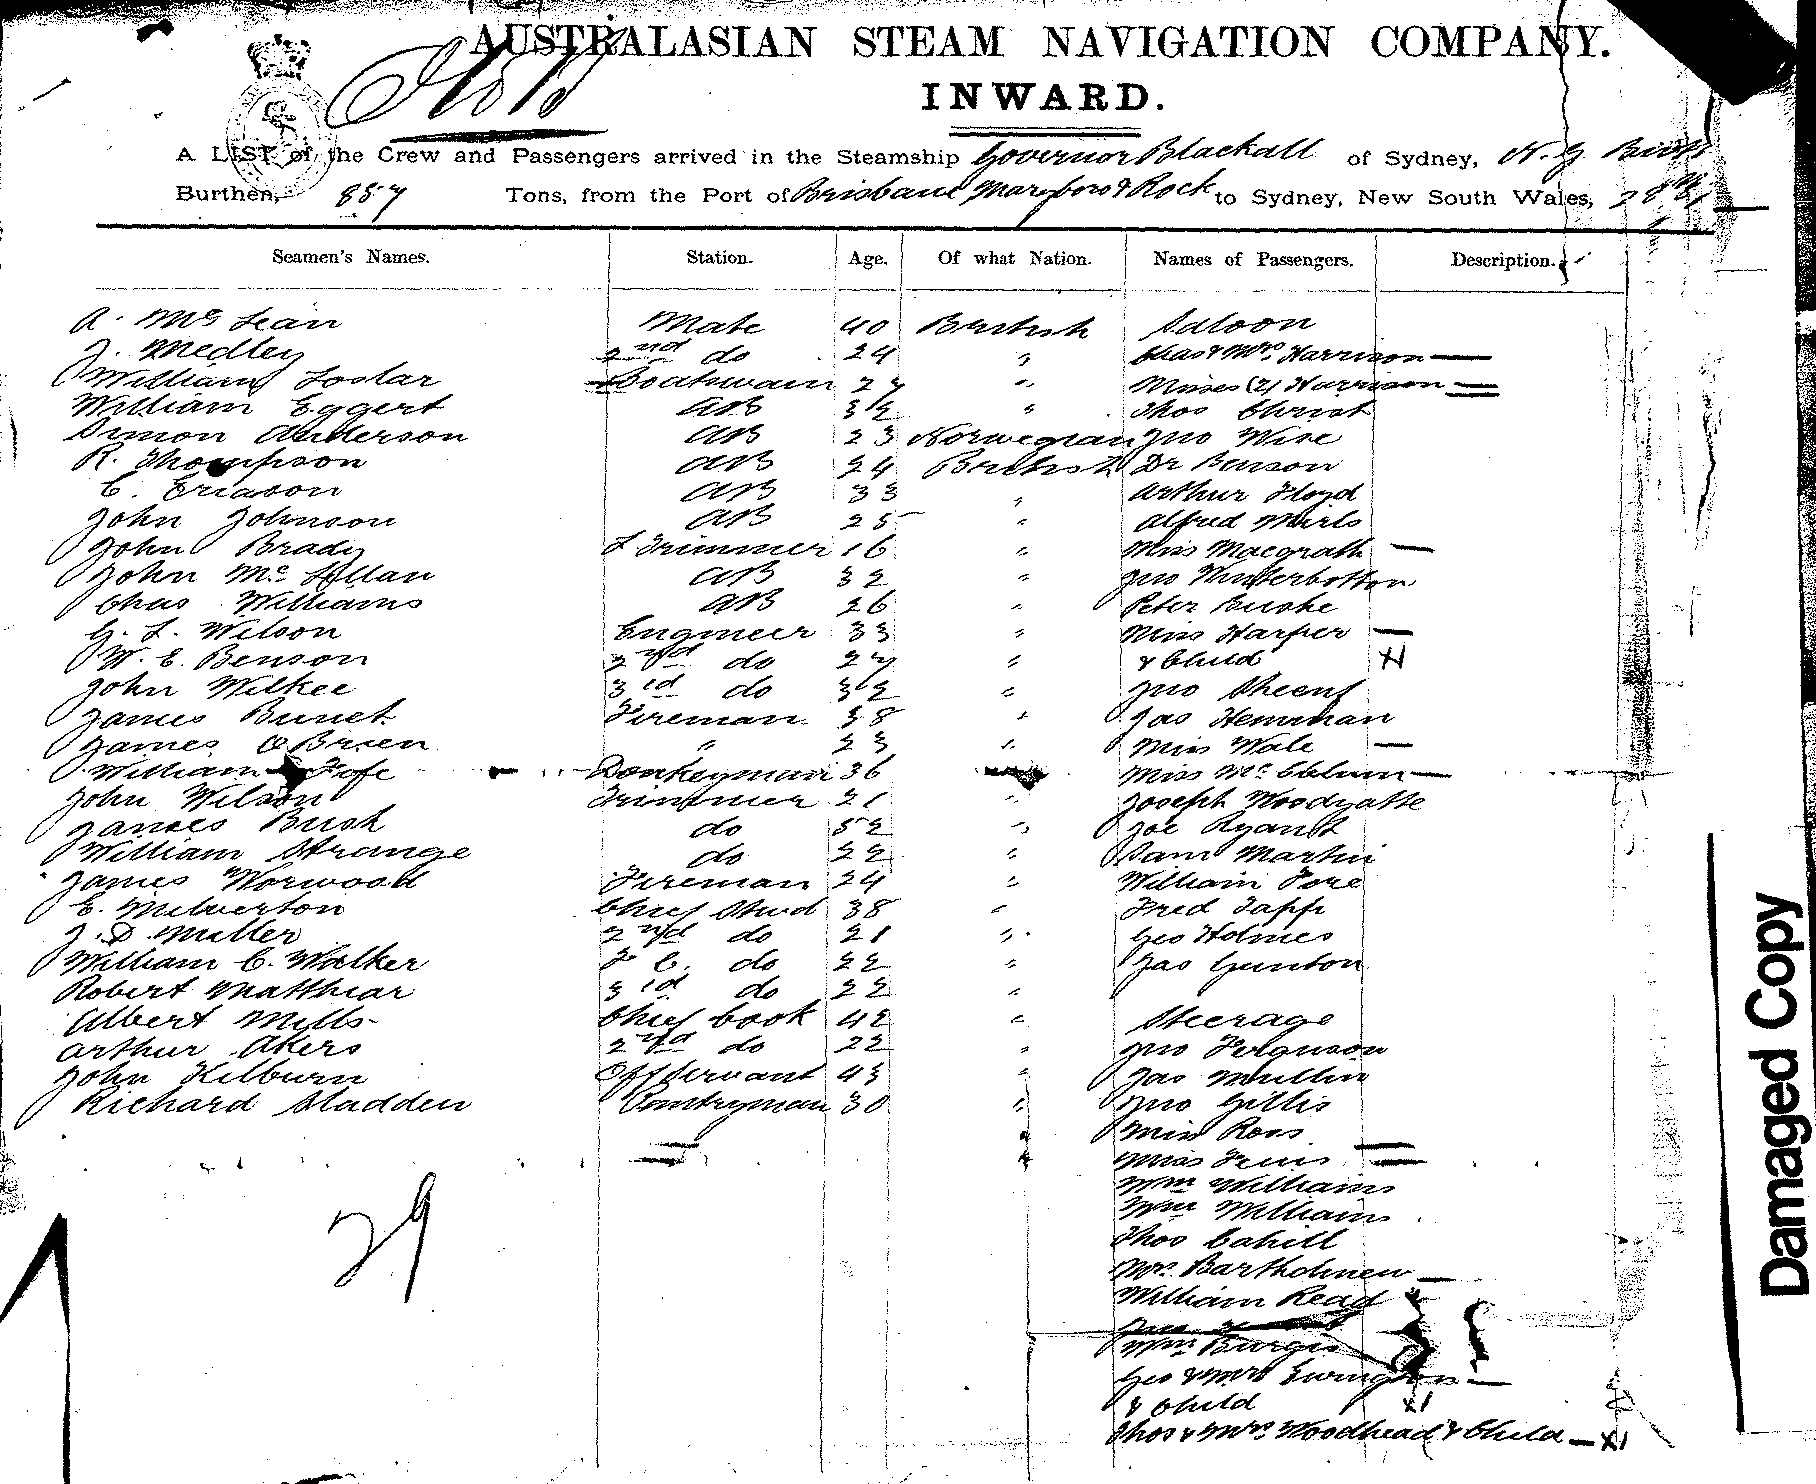 AUSTRALASIAN STEAM NAVIGATION COMPANY.
INWARD.
A LIST of the Crew and Passengers arrived in the Steamship Governor Blackall of Sydney,
Burthen, 887 Tons, from the Port of Brisbane Maryboro & Rock to Sydney, New South Wales,
Seamen's Names. Station. Age. Of what Nation. Names of Passengers. Description.
A. McLean Mate 40 British Saloon
J. Medley 2nd do 24 " Chas & Mrs Harrison
William Boatswain 27 " Misses (2) Harrison
William Eggert AB 32 " Thos Christ
Simon Anderson AB 23 Norwegian Jno Wise
R. Thompson AB 24 British Dr Benson
C. Ericson AB 33 " Arthur Floyd
John Johnson AB 25 " Alfred
John Brady Trimmer 16 " Miss Macgrath
John Mc AB 32 " Jno Winterbottom
Chas Williams AB 26 " Peter
G. L. Wilson Engineer 33 " Miss Harper
W. E. Benson 2nd do 27 " & Child
John Wilkee 3rd do 32 " Jno
James Fireman 38 " Jas
James O'Brien " 23 " Miss Wale
William Donkeyman 36 Miss
John Wilson Trimmer 21 " Joseph
James Bush do 52 " Joe
William Strange do 22 " Sam Martin
James Norwood Fireman 24 " William
E. Milverton Chief Stwd 38 " Fred Tapp
J. D. Miller 2nd do 21 " Geo Holmes
William C. Walker F C. do 22 " Jas Gunton
Robert Matthiar 3rd do 22 "
Albert Mills Chief Cook 42 " Steerage
Arthur Akers 2nd do 22 " Jno Ferguson
John Kilburn Off Servant 43 " Jas Mullin
Richard Sladden Pantryman 30 " Jno Gillis
Miss Ross
Miss
Wm Williams
Wm Williams
29
Thos Cahill
Mrs Bartholmew
William Read
Wm Burgis
Geo & Mrs
& Child
Thos & Mrs Woodhead & Child
Damaged Copy